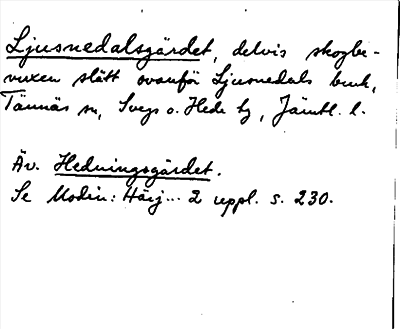 Ljusnedalsgärdet, delvis skogbe-
vuxen slätt ovanför Ljusnedals bruk,
Tännäs sn, Svegs o. Hede tg, Jämtl. l.
Äv. Hedningsgärdet.
Se Modin: Härj... 2 uppl. s. 230.